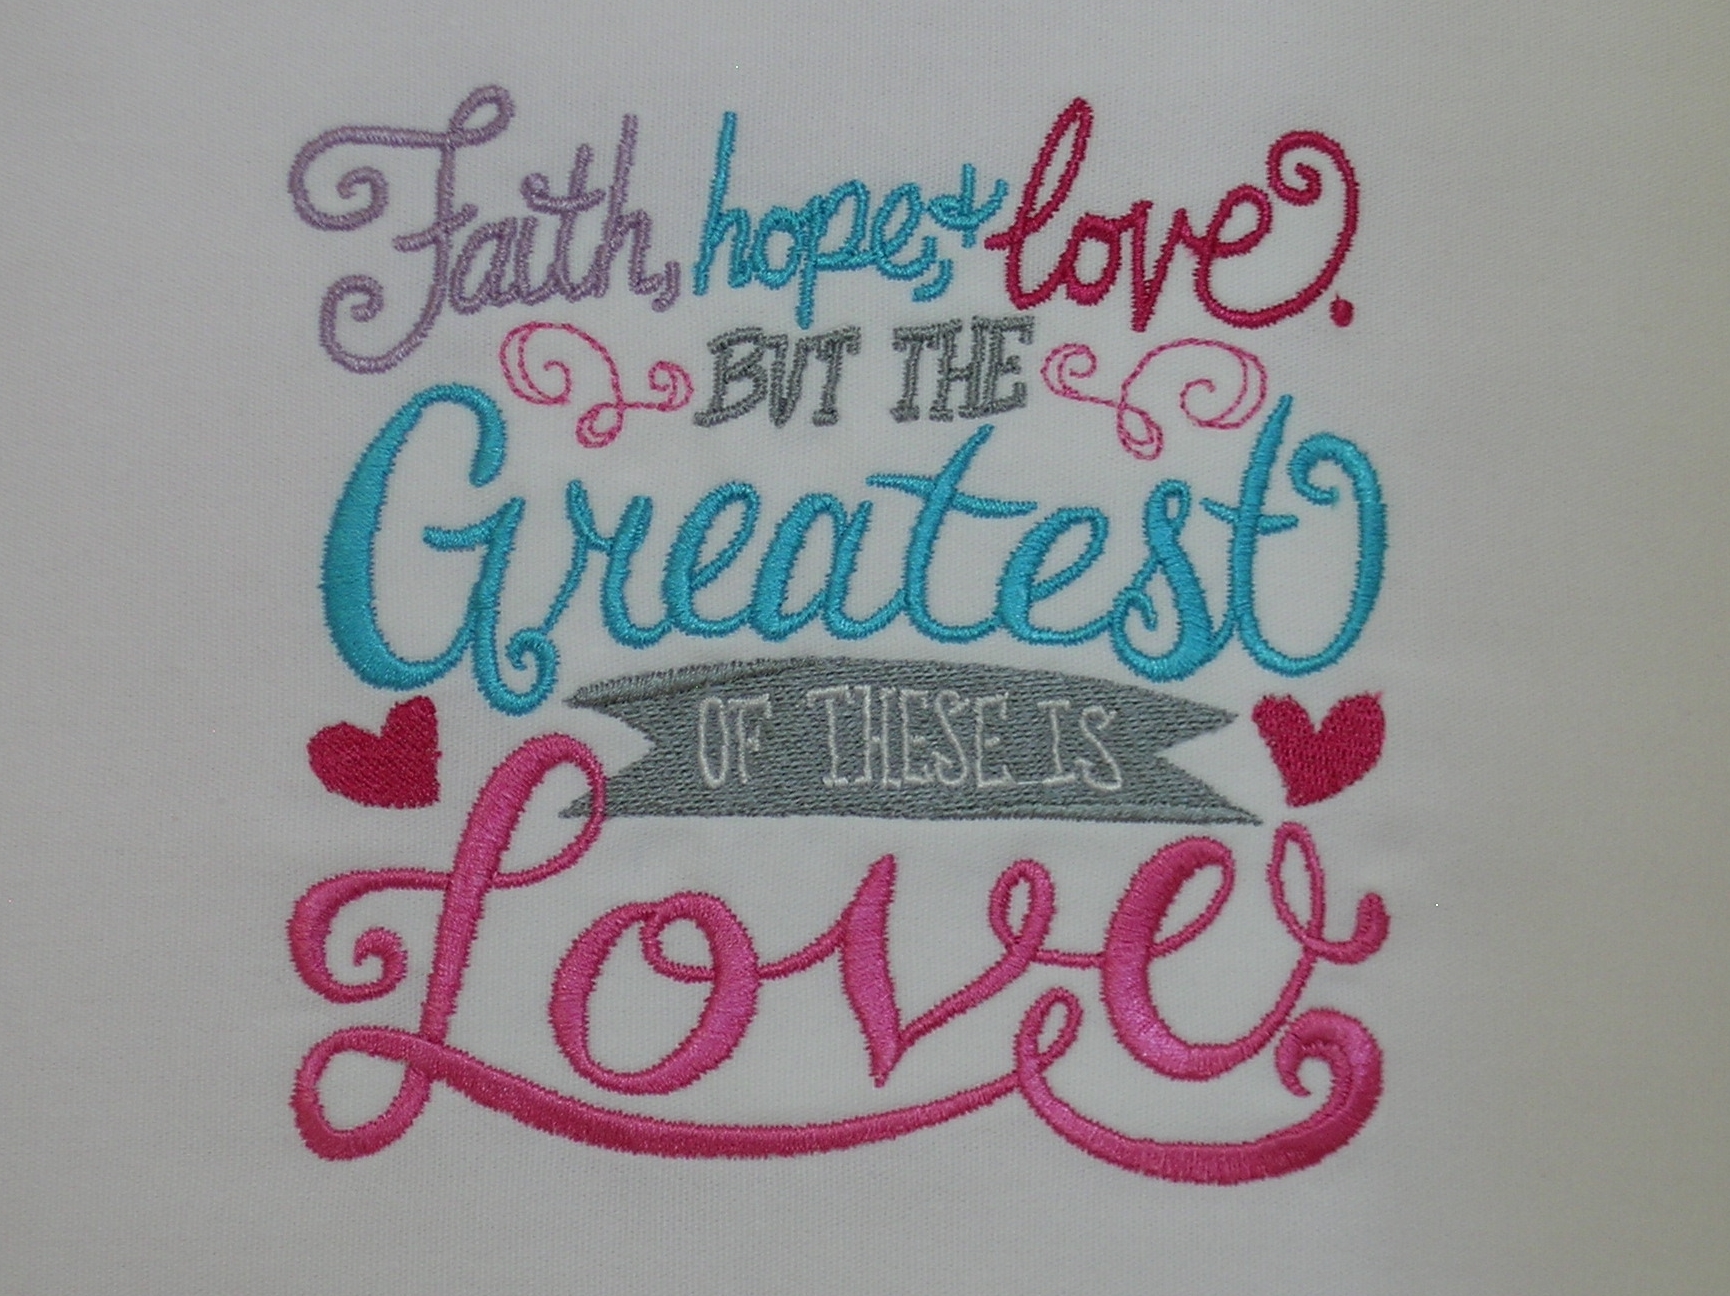 Faith, hope, & love.
BUT THE
Greatest
OF THESE IS
Love